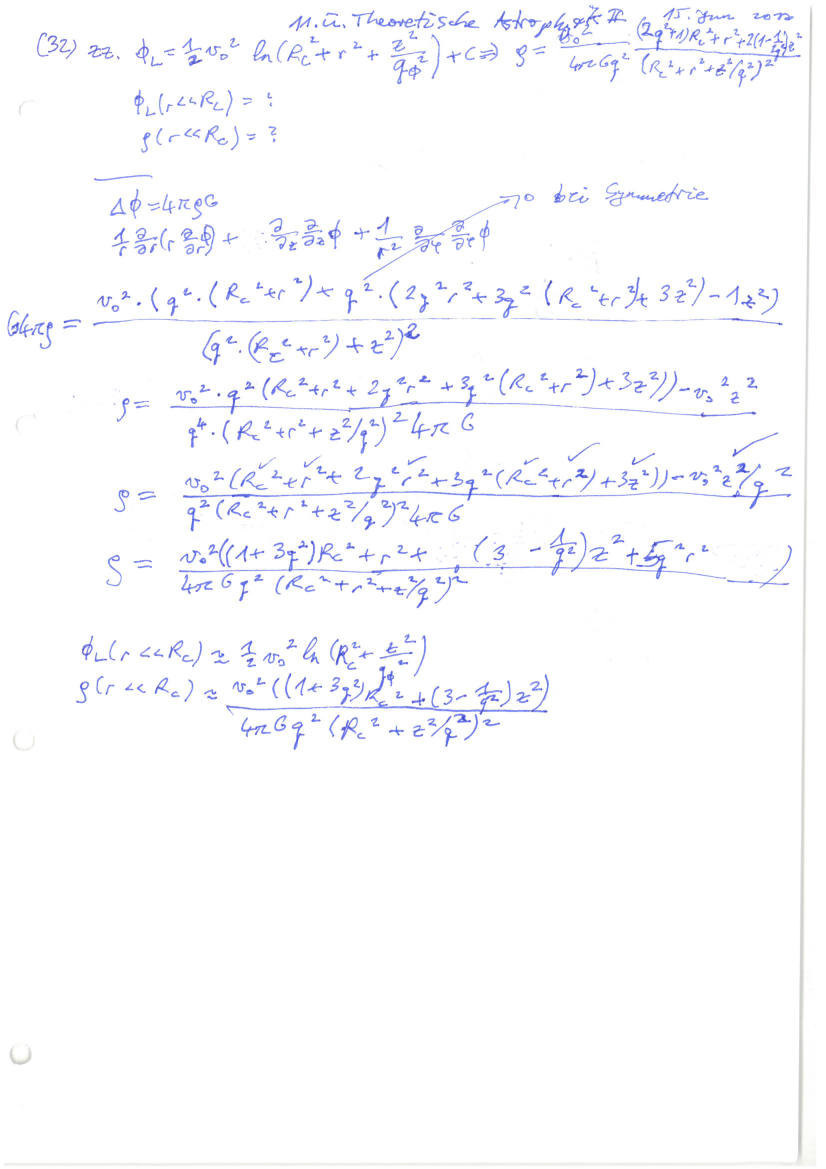 11. Ü. Theoretische Astrophysik II 15. Jun
(32) zz. ϕ_L = 1/2 v₀² ln(R_c² + r² + z²/q_ϕ²) + C ⇒ ρ = v₀²/(4πGq²) ((2q²+1)R_c² + r² + 2(1-1/(2q²))z²)/(R_c² + r² + z²/q²)²
ϕ_L(r<<R_c) = ?
ρ(r<<R_c) = ?
Δϕ = 4πρG → 0 bei Symmetrie
1/r ∂/∂r (r ∂/∂r ϕ) + ∂/∂z ∂/∂z ϕ + 1/r² ∂/∂φ ∂/∂φ ϕ
G4πρ = v₀² · (q² · (R_c² + r²) + q² · (2q²r² + 3q² (R_c² + r²) + 3z²) - 1z²) / (q² · (R_c² + r²) + z²)²
ρ = v₀² · q² (R_c² + r² + 2q²r² + 3q² (R_c² + r²) + 3z²)) - v₀² z² / q⁴ · (R_c² + r² + z²/q²)² 4πG
ρ = v₀² (R_c² + r² + 2q²r² + 3q² (R_c² + r²) + 3z²)) - v₀² z²/q² / q² (R_c² + r² + z²/q²)² 4πG
ρ = v₀² ((1+3q²)R_c² + r² + (3 - 1/q²) z² + 5q²r²) / 4πGq² (R_c² + r² + z²/q²)²
ϕ_L(r<<R_c) ≈ 1/2 v₀² ln (R_c² + z²/q_ϕ²)
ρ(r<<R_c) ≈ v₀² ((1+3q²)R_c² + (3-1/q²)z²) / 4πGq² (R_c² + z²/q²)²